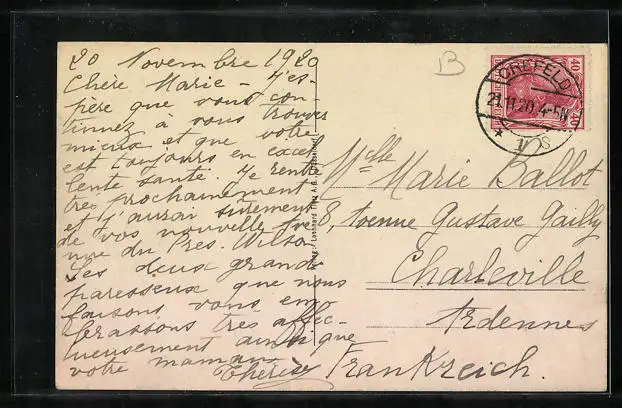 20 Novembre 1920
Chère Marie - J'es-
père que vous con-
tinuez à vous trouver
mieux et que votre
est toujours en excel
lente santé. Je rentr
très prochainement
et j'aurai sûrement
de vos nouvelles
nue du Pres. Wilso
Les deux grand
paresseux que nous
faisons vous em
brassons très affec-
tueusement ainsi que
votre maman
Thérèse
B
CREFELD
21.11.20. 4-5N
* 1 S
40 40
Leonhard Tietz A.G., Düsseldorf
Mlle Marie Ballot
8, Avenue Gustave Gailly
Charleville
Ardennes
Frankreich.